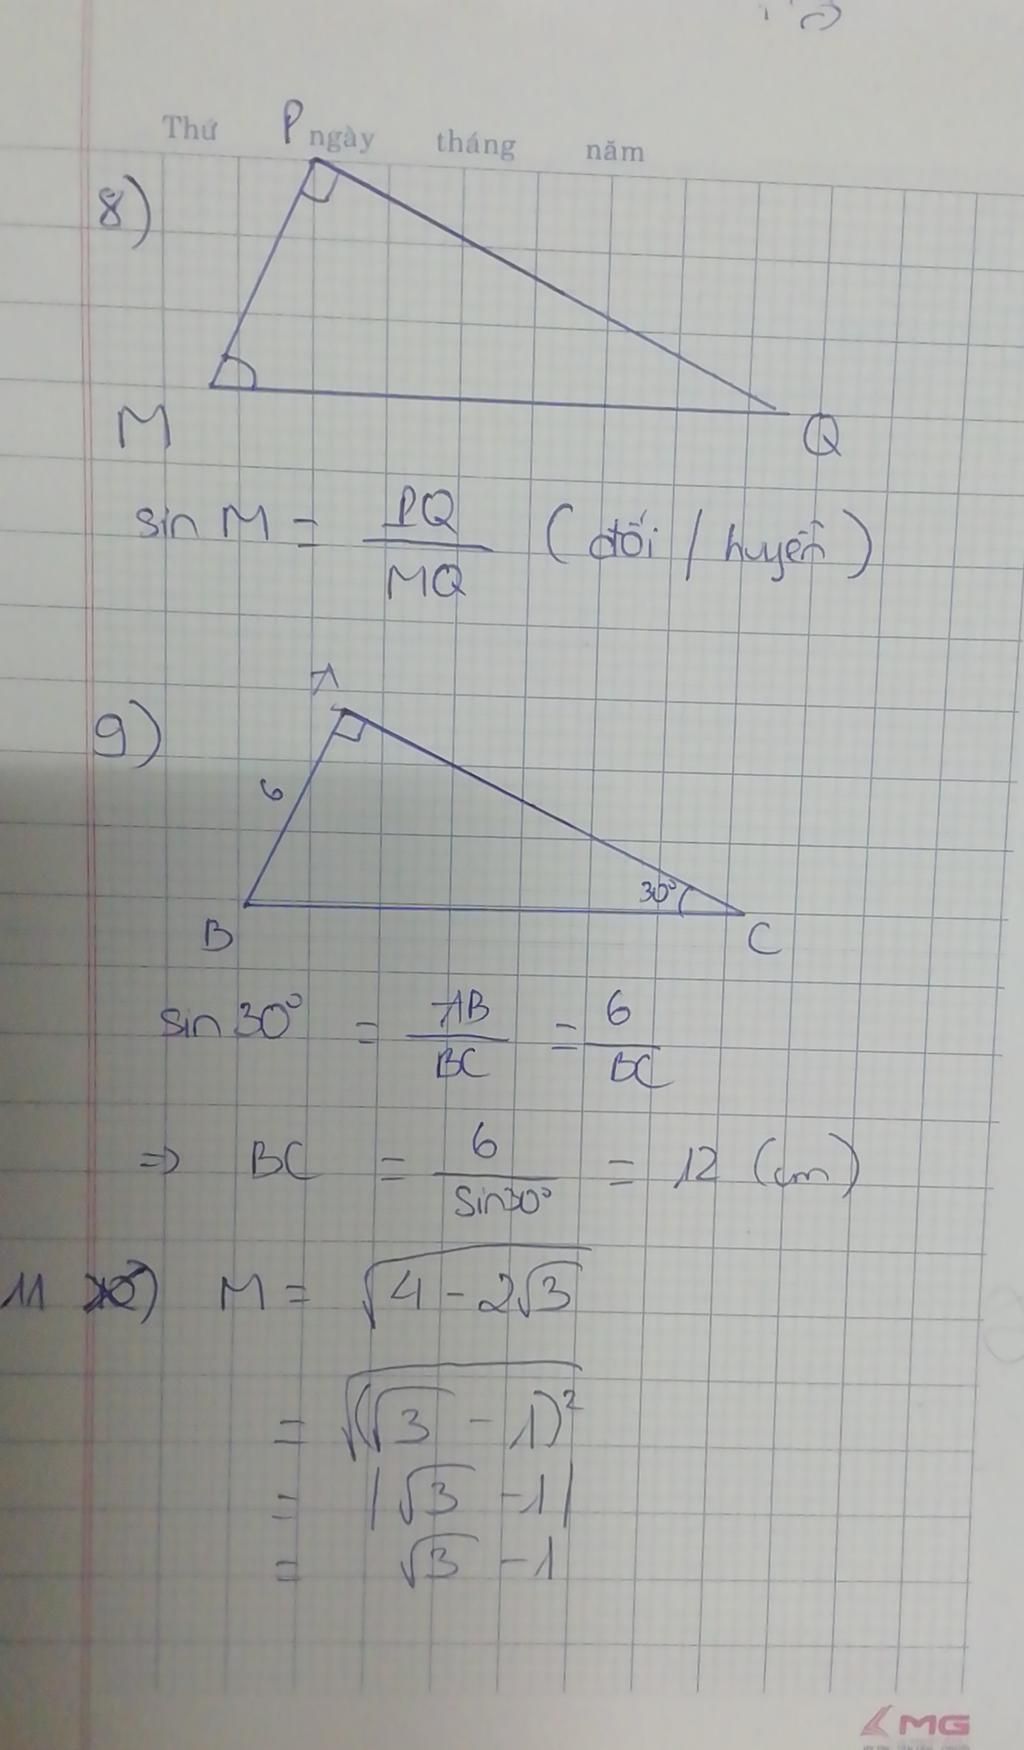 Thứ ngày tháng năm
P
8)
M
Q
sin M = PQ/MQ (đối / huyền)
A
9)
6
30°
B
C
sin 30° = AB/BC = 6/BC
=> BC = 6/sin30° = 12 (cm)
11) M = √(4 - 2√3)
= √((√3 - 1)²)
= |√3 - 1|
= √3 - 1
MG